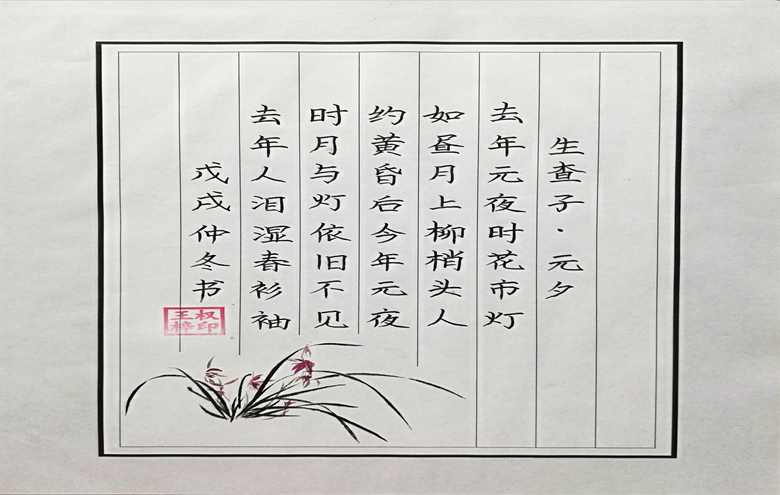 生查子·元夕
去年元夜时花市灯
如昼月上柳梢头人
约黄昏后今年元夜
时月与灯依旧不见
去年人泪湿春衫袖
戊戌仲冬书
王梓权印